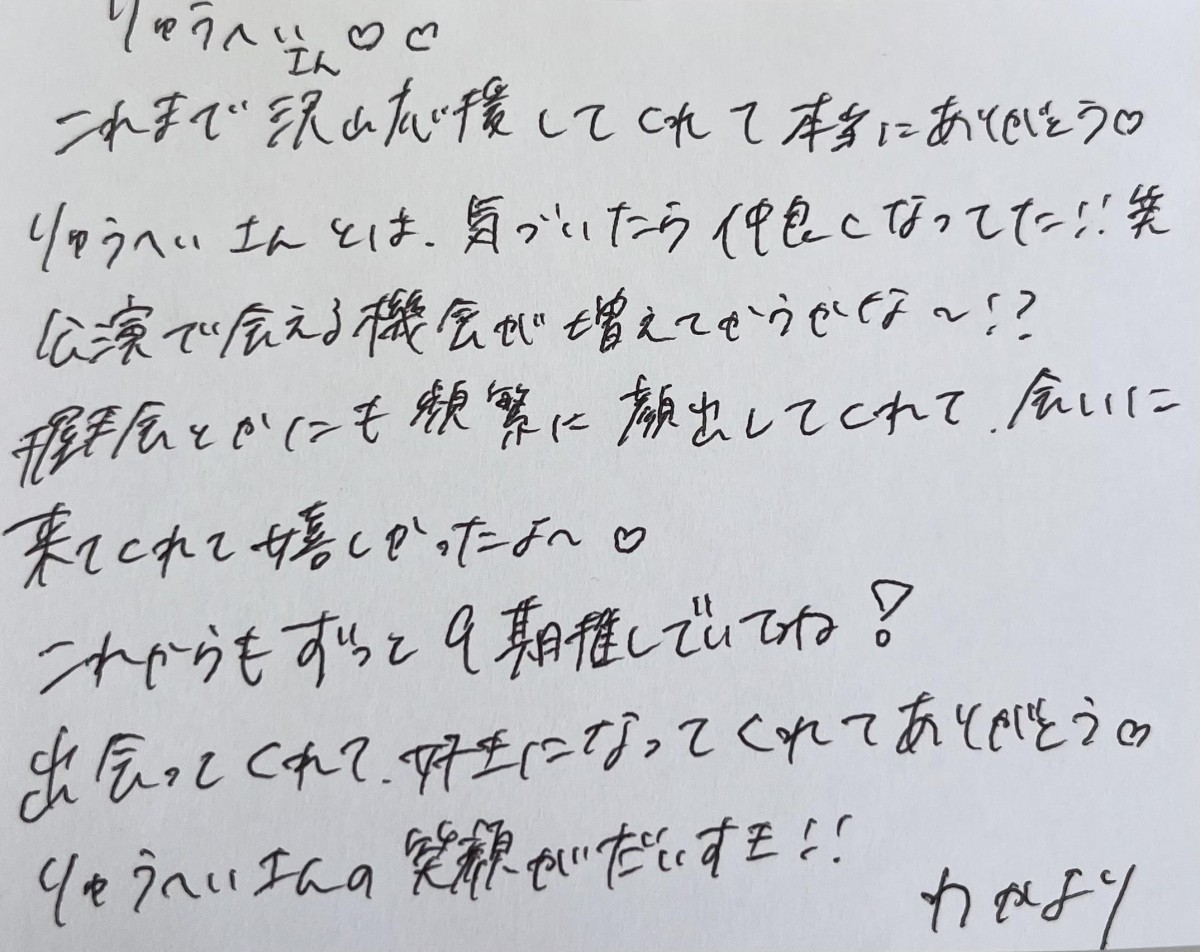 りゅうへいさん♡♡
これまで沢山応援してくれて本当にありがとう♡
りゅうへいさんとは、気づいたら仲良くなってた!!笑
公演で会える機会が増えてからかな〜!?
握手会とかにも頻繁に顔出してくれて、会いに
来てくれて嬉しかったよ〜♡
これからもずっと9期推しでいてね!
出会ってくれて、好きになってくれてありがとう♡
りゅうへいさんの笑顔がだいすき!!
わかより